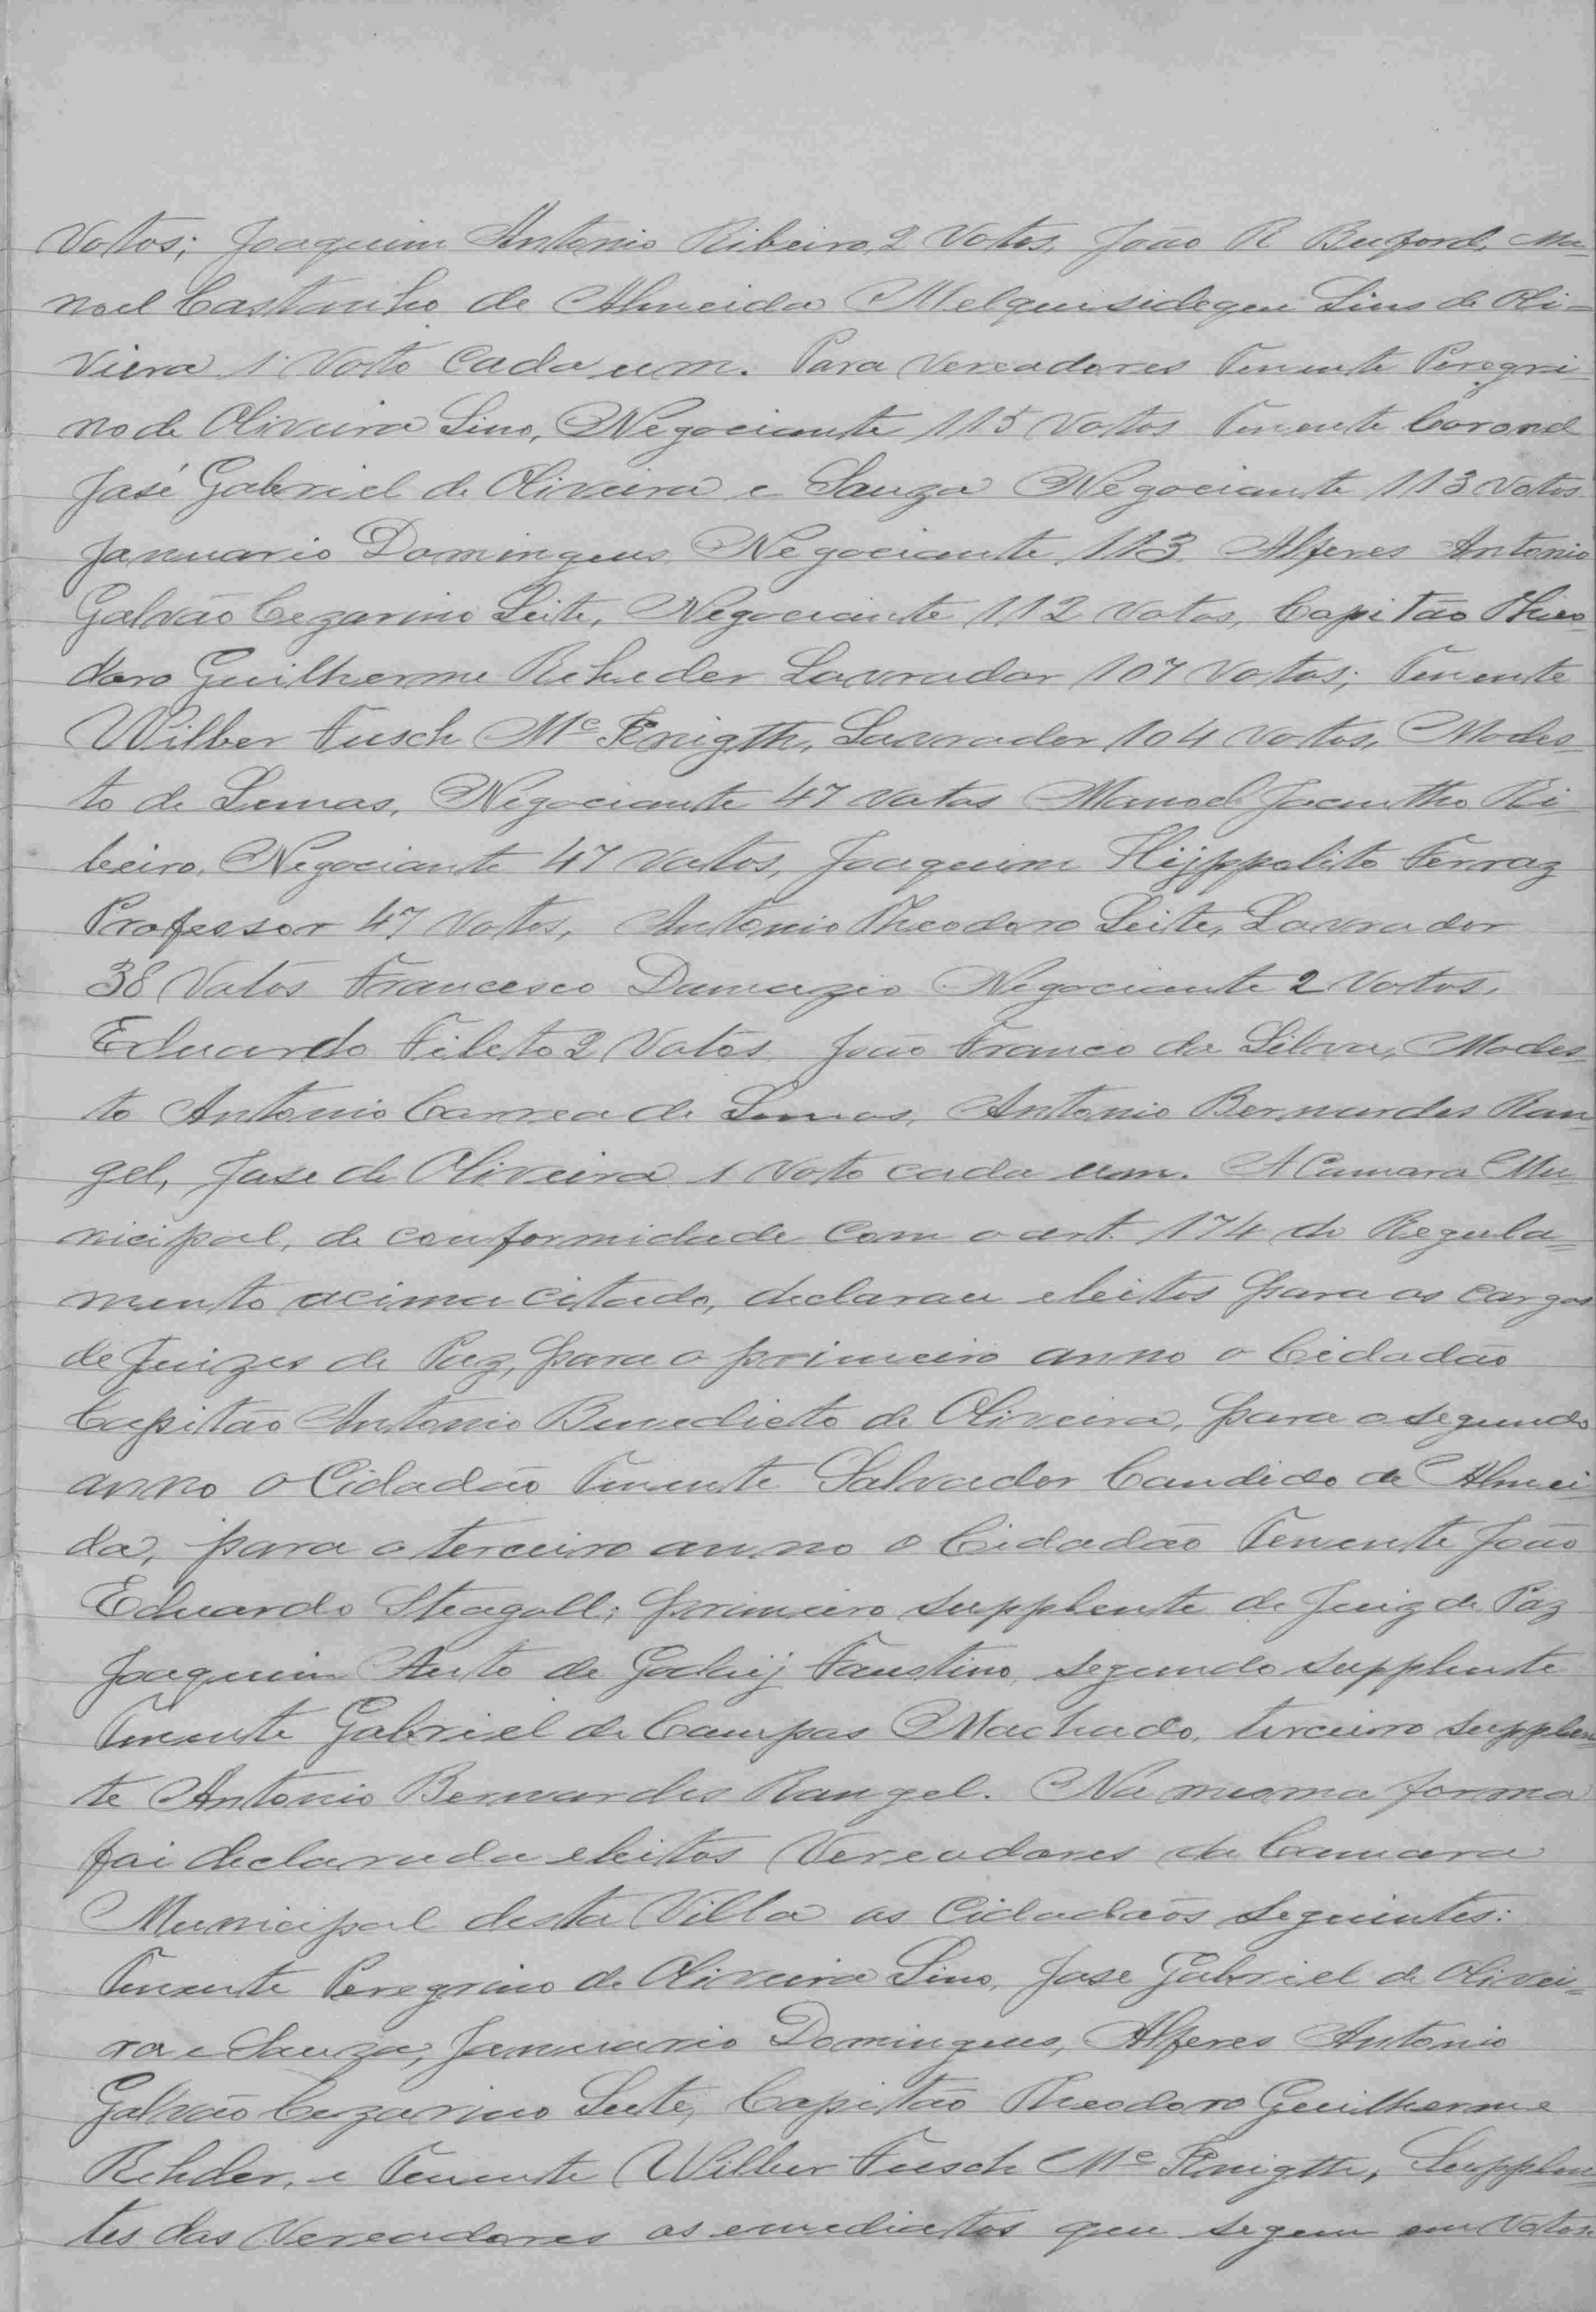 Votos; Joaquim Antonio Ribeiro 2 Votos, João R Buford, Ma-
noel Castanho de Almeida Melquisideque Lins de Oli-
viera 1 Voto Cada um. Para Vereadores Tenente Peregri-
no de Oliveira Lino, Negociante 115 Votos Tenente Coronel
José Gabriel de Oliveira e Souza Negociante 113 Votos
Januario Domingues Negociante 113 Alferes Antonio
Galvão Cezarino Leite, Negociante 112 Votos, Capitão Theo-
doro Guilherme Reheder Lavrador 107 Votos; Tenente
Wilber Fusch Mc Knigth, Lavrador 104 Votos, Modes-
to de Lemas, Negociante 47 Votos Manoel Jacintho Ri-
beiro, Negociante 47 Votos, Joaquim Hyppolito Ferraz
Professor 47 Votos, Antonio Theodoro Leite, Lavrador
38 Votos Francesco Damazio Negociante 2 Votos,
Eduardo Fileto 2 Votos João Franco da Silva, Modes-
to Antonio Correa de Lemos, Antonio Bernardes Ran
gel, Jose de Oliveira 1 Voto cada um. A Camara Mu-
nicipal, de conformidade Com o art. 174 do Regula=
mento acima citado, declarau eleitos para os cargos
de Juizes de Paz, para o primeiro anno o Cidadão
Capitão Antonio Benedicto de Oliveira, para o segundo
anno o Cidadão Tenente Salvador Candido de Almei-
da, para o terceiro anno o Cidadão Tenente João
Eduardo Steagall; primeiro supplente de Juiz de Paz
Joaquim Anto de Godoij Faustino, segundo supplente
Tenente Gabriel de Campos Machado, terceiro supplen=
te Antonio Bernardes Rangel. Na mesma forma
foi declarada eleitos Vereadores da Camara
Municipal desta Villa os Cidadãos seguintes:
Tenente Peregrino de Oliveira Lino, Jose Gabriel de Olivei=
ra e Souza, Januario Domingues, Alferes Antonio
Galvão Cezarino Leite, Capitão Theodoro Guilherme
Rehder, e Tenente Wilber Fusch Mc Knigth, Supplen=
tes dos Vereadores os emediatos que segem em Votos.